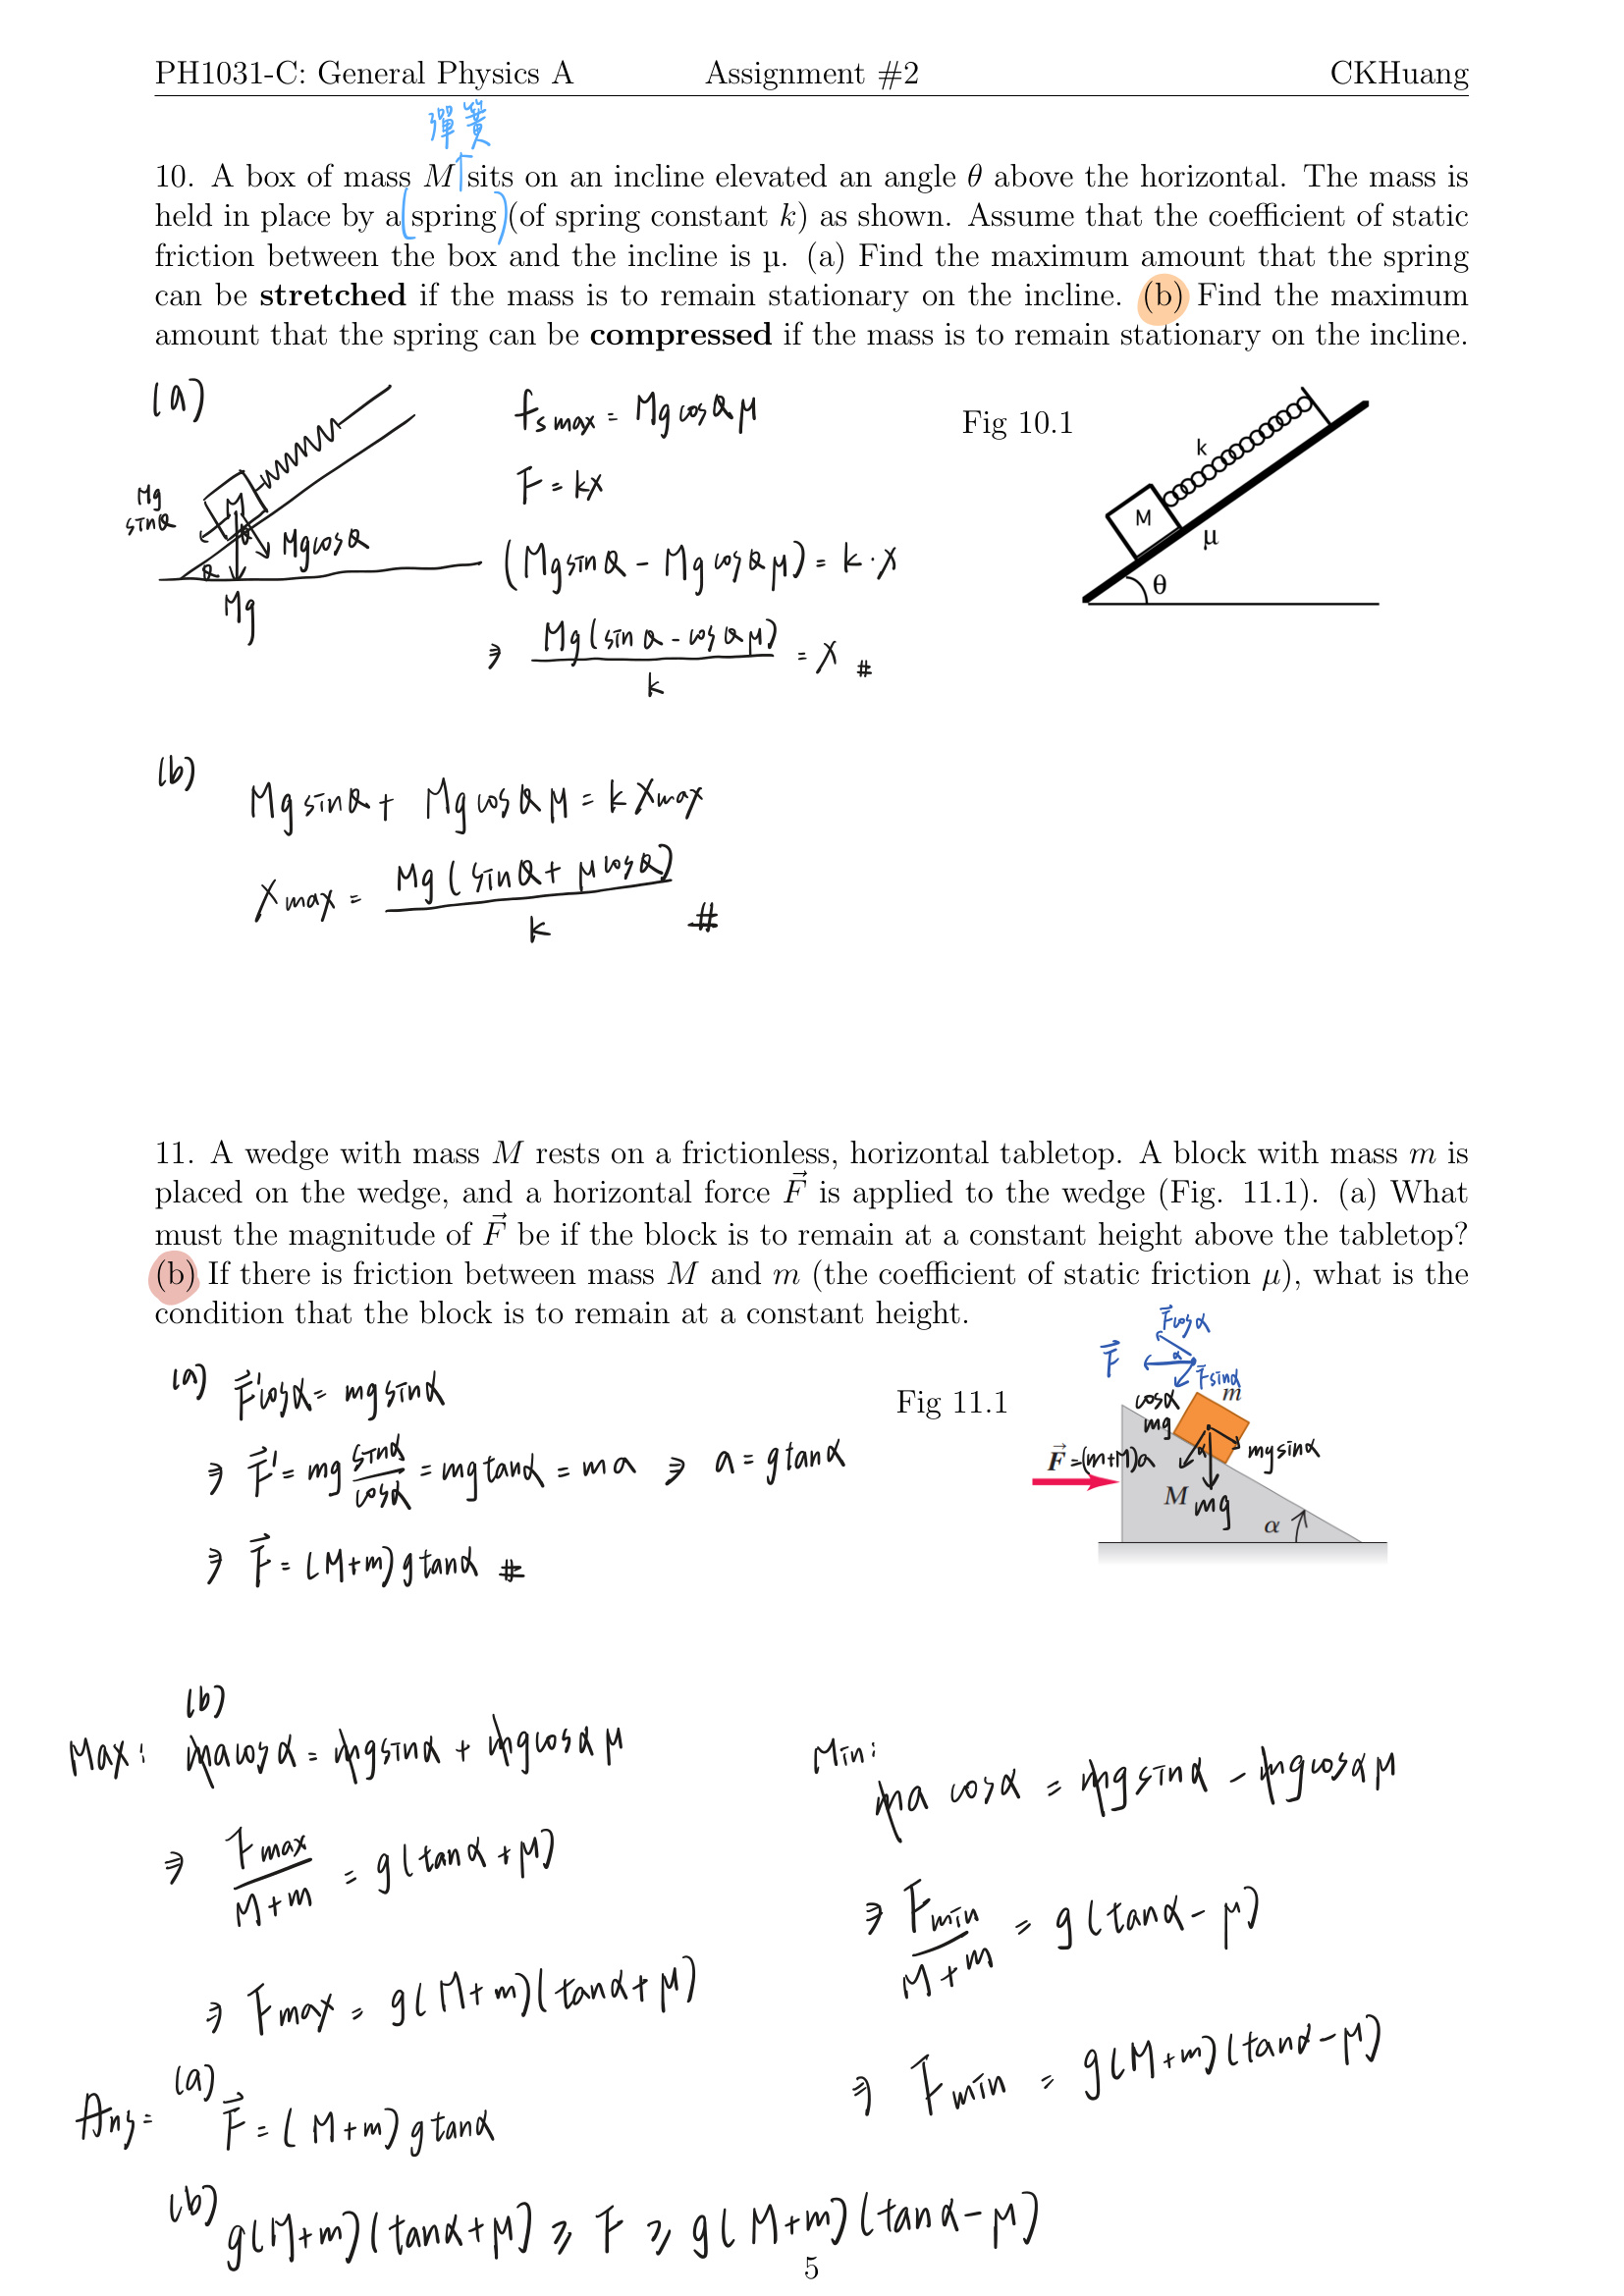 PH1031-C: General Physics A Assignment #2 CKHuang
彈簧
10. A box of mass M sits on an incline elevated an angle θ above the horizontal. The mass is
held in place by a spring (of spring constant k) as shown. Assume that the coefficient of static
friction between the box and the incline is µ. (a) Find the maximum amount that the spring
can be stretched if the mass is to remain stationary on the incline. (b) Find the maximum
amount that the spring can be compressed if the mass is to remain stationary on the incline.
(a)
Mg sinθ
M
θ
Mg cosθ
θ
Mg
f_s max = Mg cosθ μ
F = kx
(Mg sinθ - Mg cosθ μ) = k · x
⇒ Mg(sinθ - cosθ μ) / k = x #
Fig 10.1
k
M
μ
θ
(b)
Mg sinθ + Mg cosθ μ = k x_max
x_max = Mg(sinθ + μ cosθ) / k #
11. A wedge with mass M rests on a frictionless, horizontal tabletop. A block with mass m is
placed on the wedge, and a horizontal force F⃗ is applied to the wedge (Fig. 11.1). (a) What
must the magnitude of F⃗ be if the block is to remain at a constant height above the tabletop?
(b) If there is friction between mass M and m (the coefficient of static friction μ), what is the
condition that the block is to remain at a constant height.
(a) F⃗' cosα = mg sinα
⇒ F⃗' = mg sinα / cosα = mg tanα = ma ⇒ a = g tanα
⇒ F⃗ = (M+m) g tanα #
Fig 11.1
F⃗cosα
F⃗
α
F⃗sinα
m
cosα mg
α
mg sinα
F⃗ =(m+M)a
M
mg
α
(b)
Max: ma cosα = mg sinα + mg cosα μ
⇒ F_max / M+m = g(tanα + μ)
⇒ F_max = g(M+m)(tanα + μ)
Min:
ma cosα = mg sinα - mg cosα μ
⇒ F_min / M+m = g(tanα - μ)
⇒ F_min = g(M+m)(tanα - μ)
Ans= (a) F⃗ = (M+m) g tanα
(b) g(M+m)(tanα+μ) ≥ F ≥ g(M+m)(tanα-μ)
5